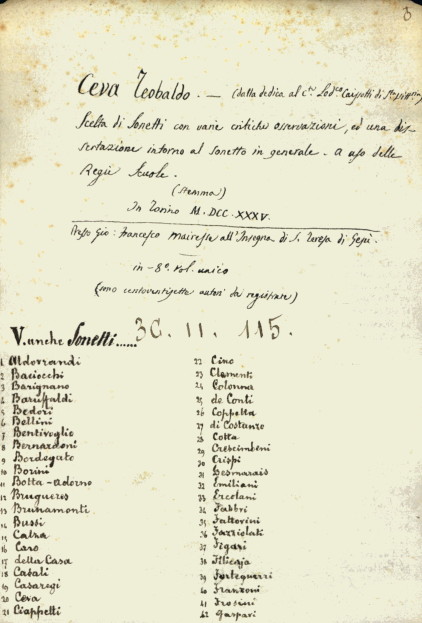 3
Ceva Teobaldo. — (dalla dedica al Cte Lodco Caissotti di Sta
Scelta di Sonetti con varie critiche osservazioni, ed una dis-
sertazione intorno al sonetto in generale. a uso delle
Regie Scuole.
(stemma)
In Torino M.DCC.XXXV.
Presso Gio: Francesco Mairesse all'Insegna di S. Teresa di Gesù.
in-8º. vol. unico
(sono centoventisette autori da registrare)
V. anche Sonetti..... 3C. 11. 115.
1 Aldovrandi
2 Baciocchi
3 Barignano
4 Baruffaldi
5 Bedori
6 Bellini
7 Bentivoglio
8 Bernardoni
9 Bordegato
10 Borini
11 Botta-adorno
12 Brugueres
13 Brunamonti
14 Bussi
15 Calza
16 Caro
17 della Casa
18 Casali
19 Casaregi
20 Ceva
21 Ciappetti
22 Cino
23 Clementi
24 Colonna
25 de Conti
26 Coppetta
27 di Costanzo
28 Cotta
29 Crescimbeni
30 Crispi
31 Desmarais
32 Emiliani
33 Ercolani
34 Fabbri
35 Fattorini
36 Fazziolati
37 Figari
38 Filicaja
39 Forteguerri
40 Franzoni
41 Frosini
42 Gaspari